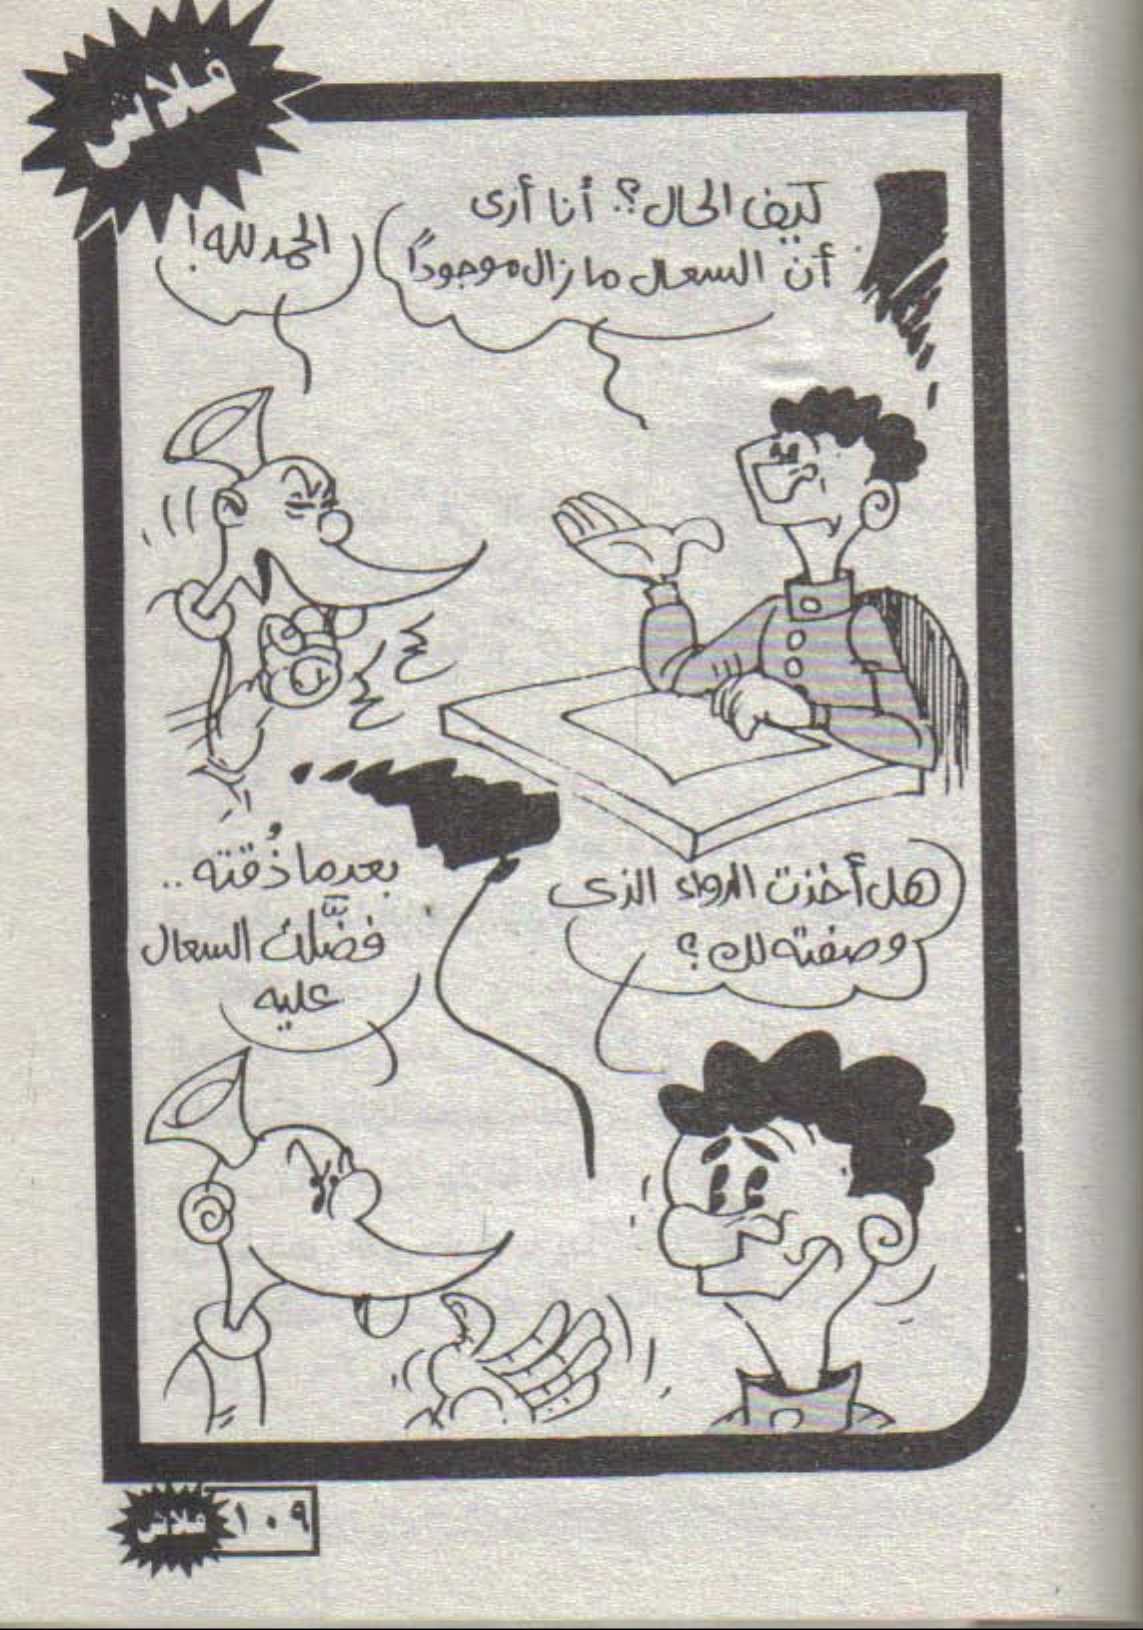 فلاش
كيف الحال؟.. أنا أرى
أن السعال ما زال موجوداً
الحمد لله!
هل أخذت الدواء الذى
وصفته لك؟
بعدما ذُقته..
فضَّلت السعال
عليه
فلاش ١٠٩